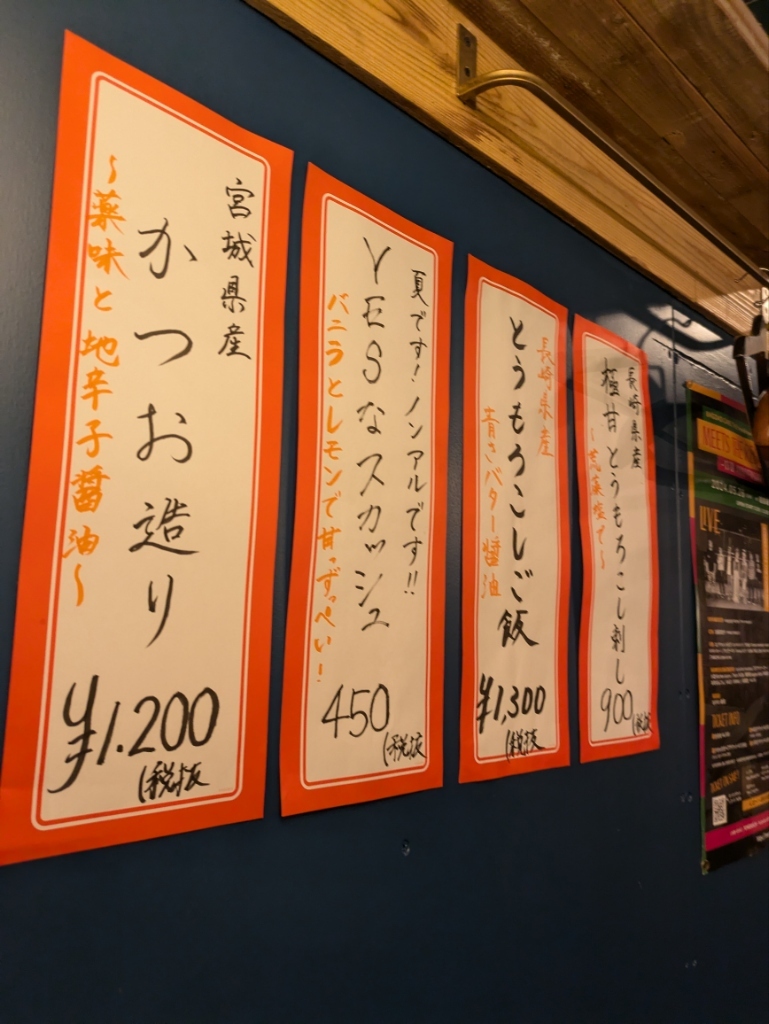 宮城県産
かつお造り
〜薬味と地辛子醤油〜
¥1.200
(税抜
夏です!ノンアルです!!
YESなスカッシュ
バニラとレモンで甘っずっぺい!
450
(税抜
長崎県産
とうもろこしご飯
青さバター醤油
¥1,300
(税抜
長崎県産
極甘とうもろこし刺し
900
(税抜
MEETS
LIVE
TICKET INFO